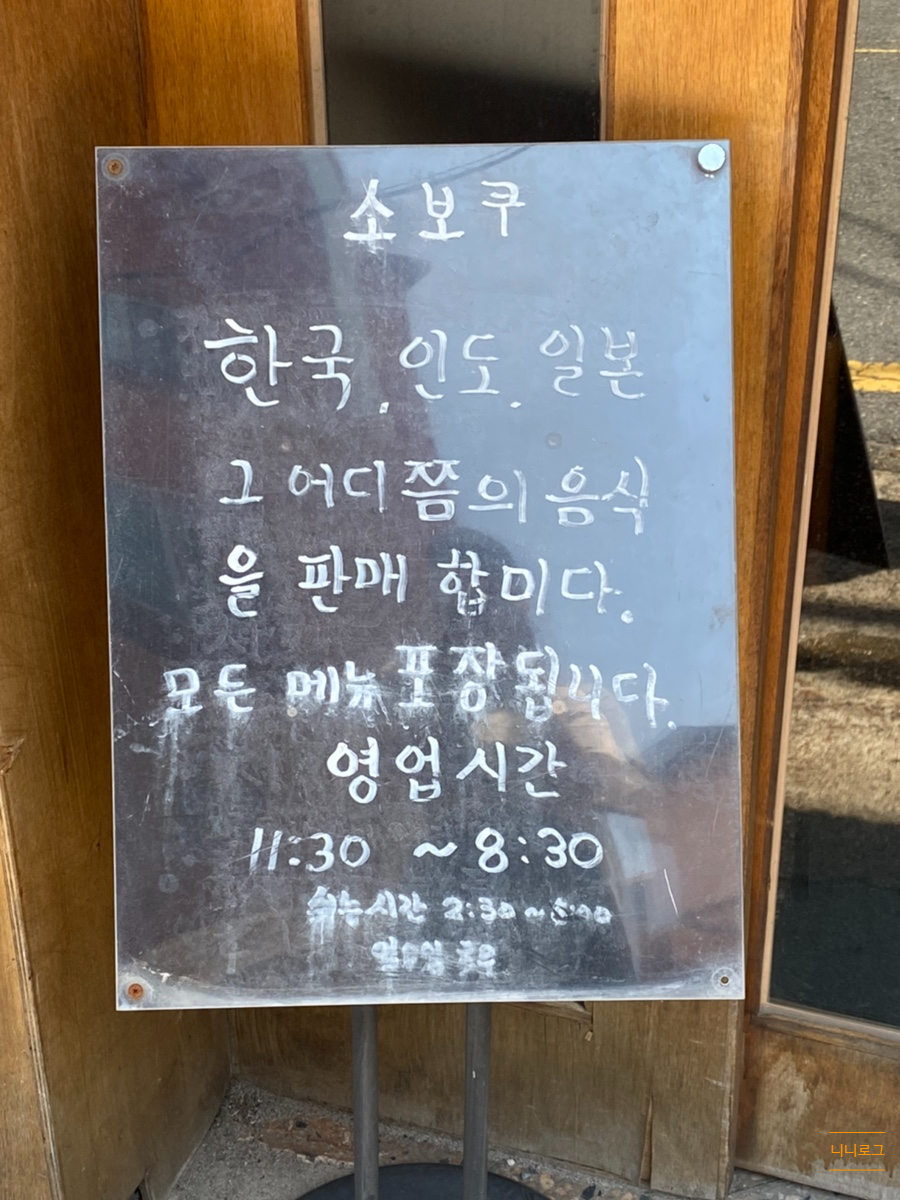 소보쿠
한국, 인도, 일본
그 어디쯤의 음식
을 판매 합미다.
모든 메뉴 포장됩니다.
영업시간
11:30 ~ 8:30
쉬는시간 2:30 ~ 5:00
일요일 휴무
니니로그